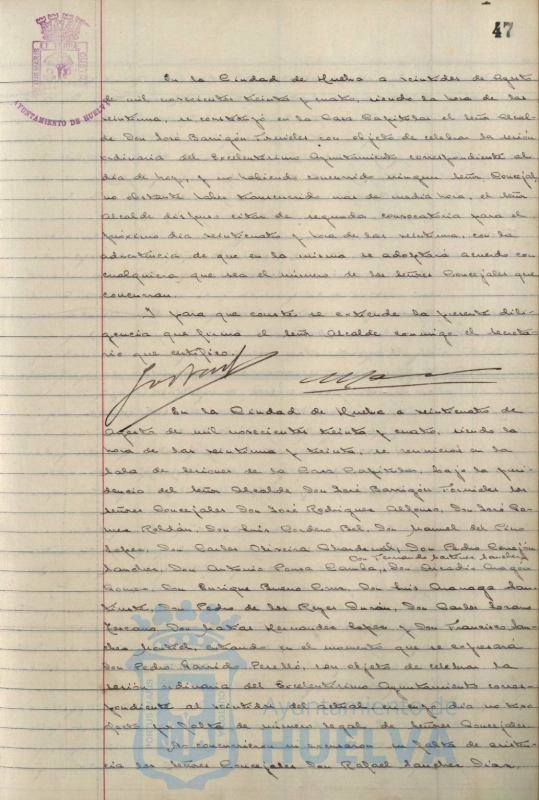 47
AYUNTAMIENTO DE HUELVA
En la Ciudad de Huelva a veintidos de Agosto
de mil novecientos treinta y cuatro, siendo la hora de las
veintiuna, se constituyó en la Casa Capitular el Señor Alcal-
de Don José Barrigón Fornieles con objeto de celebrar la sesión
ordinaria del Excelentísimo Ayuntamiento correspondiente al
día de hoy, y no habiendo concurrido ningun Señor Concejal,
no obstante haber transcurrido mas de media hora, el Señor
Alcalde dispuso citar de segunda convocatoria para el
próximo dia veinticuatro y hora de las veintiuna, con la
advertencia de que en la misma se adoptará acuerdo con
cualquiera que sea el número de los Señores Concejales que
concurran.
Y para que conste se extiende la presente dili-
gencia que firma el Señor Alcalde conmigo el Secreta-
rio que certifico.
En la Ciudad de Huelva a veinticuatro de
Agosto de mil novecientos treinta y cuatro, siendo la
hora de las veintiuna y treinta, se reunieron en la
Sala de Sesiones de la Casa Capitular, bajo la presi-
dencia del Señor Alcalde Don José Barrigón Fornieles los
Señores Concejales Don José Rodriguez Alfonso, Don José
Roldán, Don Luis Cordero Bel, Don Manuel del Pino
Lopez, Don Carlos Oliveira Don Pedro Cerejón
Don Fernando Sanchez
Sanchez, Don Antonio Ponce Don Arcadio Aragón
Gomez, Don Enrique Bueno Cruz, Don Luis
Don Pedro de los Reyes Durán, Don Carlos Lozano
Toscano, Don Matias Hernandez Lopez y Don Francisco San-
chez entrando en el momento que se expresará
Don Pedro Garrido Perelló, con objeto de celebrar la
sesión ordinaria del Excelentísimo Ayuntamiento corres-
pondiente al veintidos del actual, en cuyo dia no tuvo
efecto por falta de número legal de Señores Concejales.
No concurrieron ni excusaron su falta de asisten-
cia los Señores Concejales Don Rafael Sanchez Diaz,
Ayuntamiento de
HUELVA